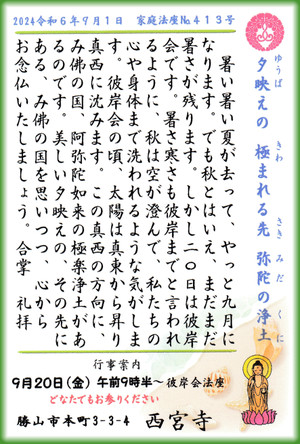 2024令和6年9月1日　家庭法座№413号
夕映えの　極まれる先　弥陀の浄土
ゆうば　きわ　さき　みだ　くに
　暑い暑い夏が去って、やっと九月に
なります。でも秋とはいえ、まだまだ
暑さが残ります。しかし二〇日は彼岸
会です。暑さ寒さも彼岸までと言われ
るように、秋は空が澄んで、私たちの
心や身体まで洗われるような気がしま
す。彼岸会の頃、太陽は真東から昇り
真西に沈みます。この真西の方向に、
み佛の国、阿弥陀如来の極楽浄土があ
るのです。美しい夕映えの、その先に
ある、み佛の国を思いつつ、心から
お念仏いたしましょう。合掌　礼拝
行事案内
9月20日(金)　午前9時半～彼岸会法座
どなたでもお参りください
勝山市本町3-3-4　西宮寺